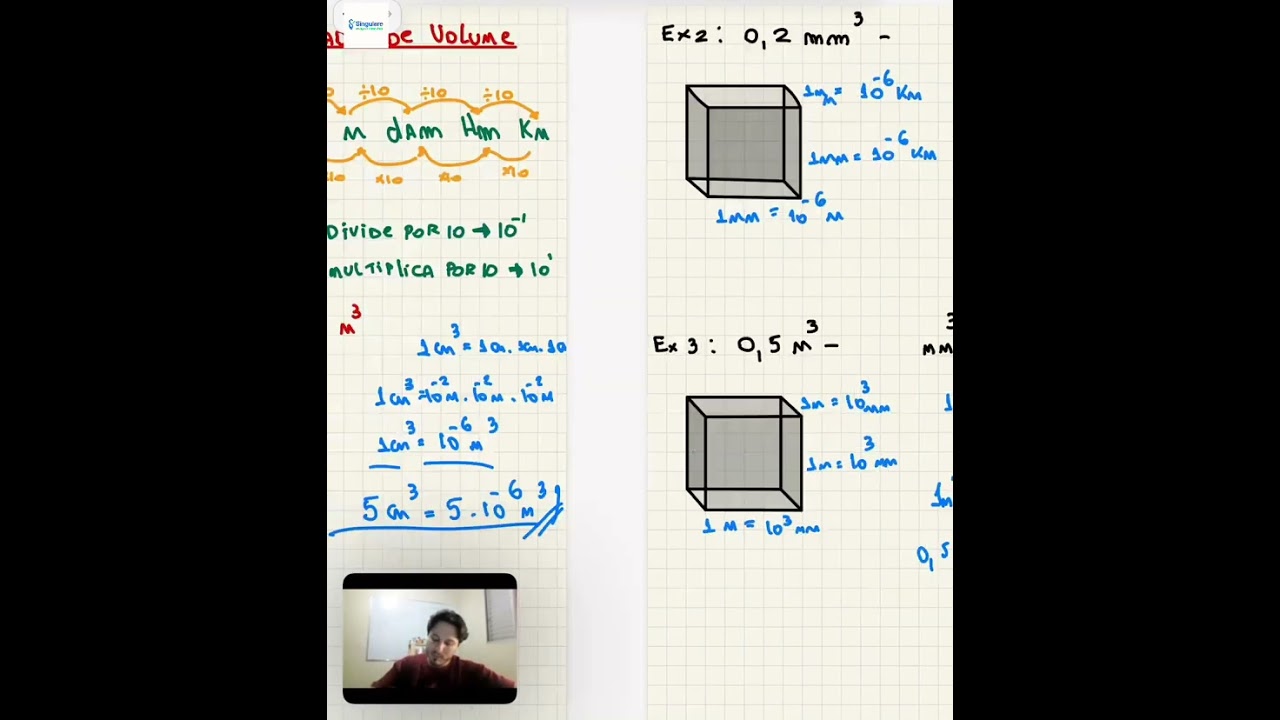 Singulare
DE VOLUME
÷10 ÷10 ÷10
M dAm Hm Km
x10 x10 x10 x10
DIVIDE POR 10 → 10⁻¹
MULTIPLICA POR 10 → 10¹
m³
1cm³ = 1cm. 1cm. 1c
1cm³ = 10⁻²m . 10⁻²m . 10⁻²m
1cm³ = 10⁻⁶ m³
5cm³ = 5.10⁻⁶ m³
Ex2: 0,2 mm³ -
1mm = 10⁻⁶ Km
1mm = 10⁻⁶ Km
1mm = 10⁻⁶ M
Ex 3: 0,5 m³ - mm³
1m = 10³ mm
1m = 10³ mm
1 m = 10³ mm
1m
0,5